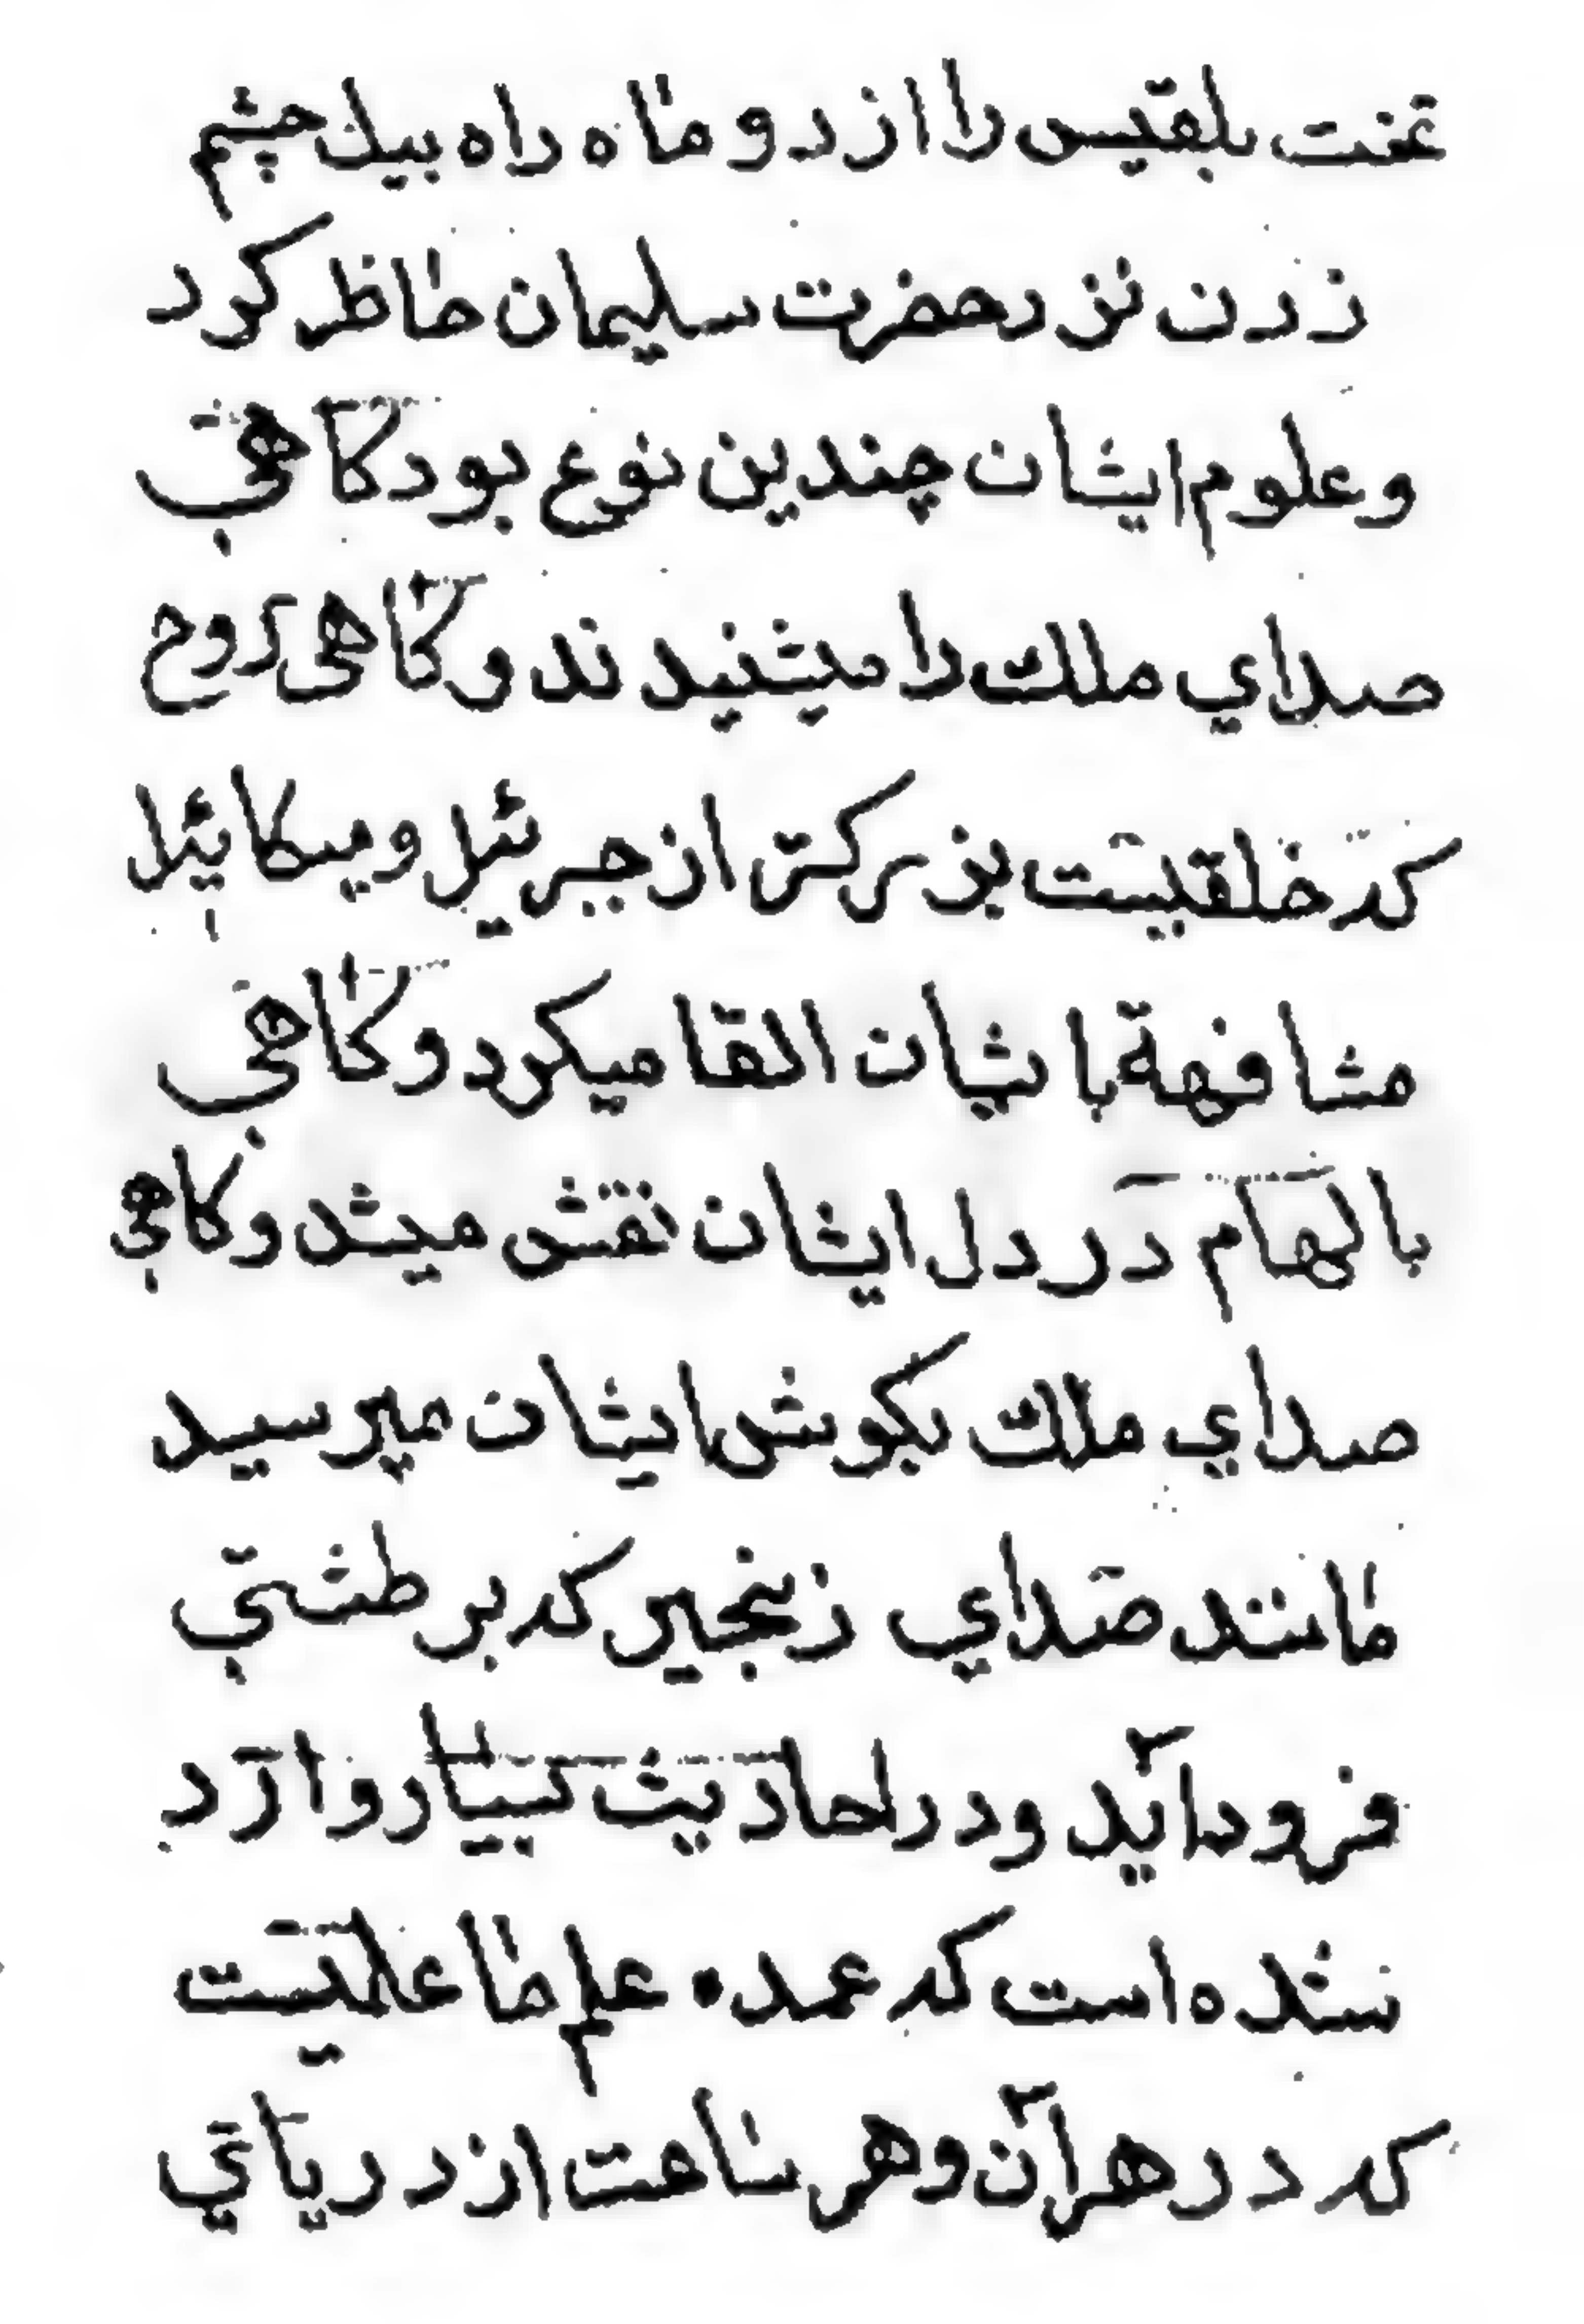 تخت بلقیس را از دو ماه راه بیك چشم
زدن نزد حضرت سلیمان حاظر کرد
و علوم ایشان چندین نوع بود کاهی
صدای ملك را میشنیدند و کاهی روح
که خلقیست بزرکتر از جبرئیل و میکائیل
مشافهة با یشان القا میکرد و کاهی
بالهام در دل ایشان نقش میشد و کاهی
صدای ملك بکوش ایشان میرسید
مانند صدای زنجیر که بر طشتی
فرود آید و در احادیث بسیار وارد
شده است که عمده علم ما علمیست
که در هر آن و هر ساعت از دریای